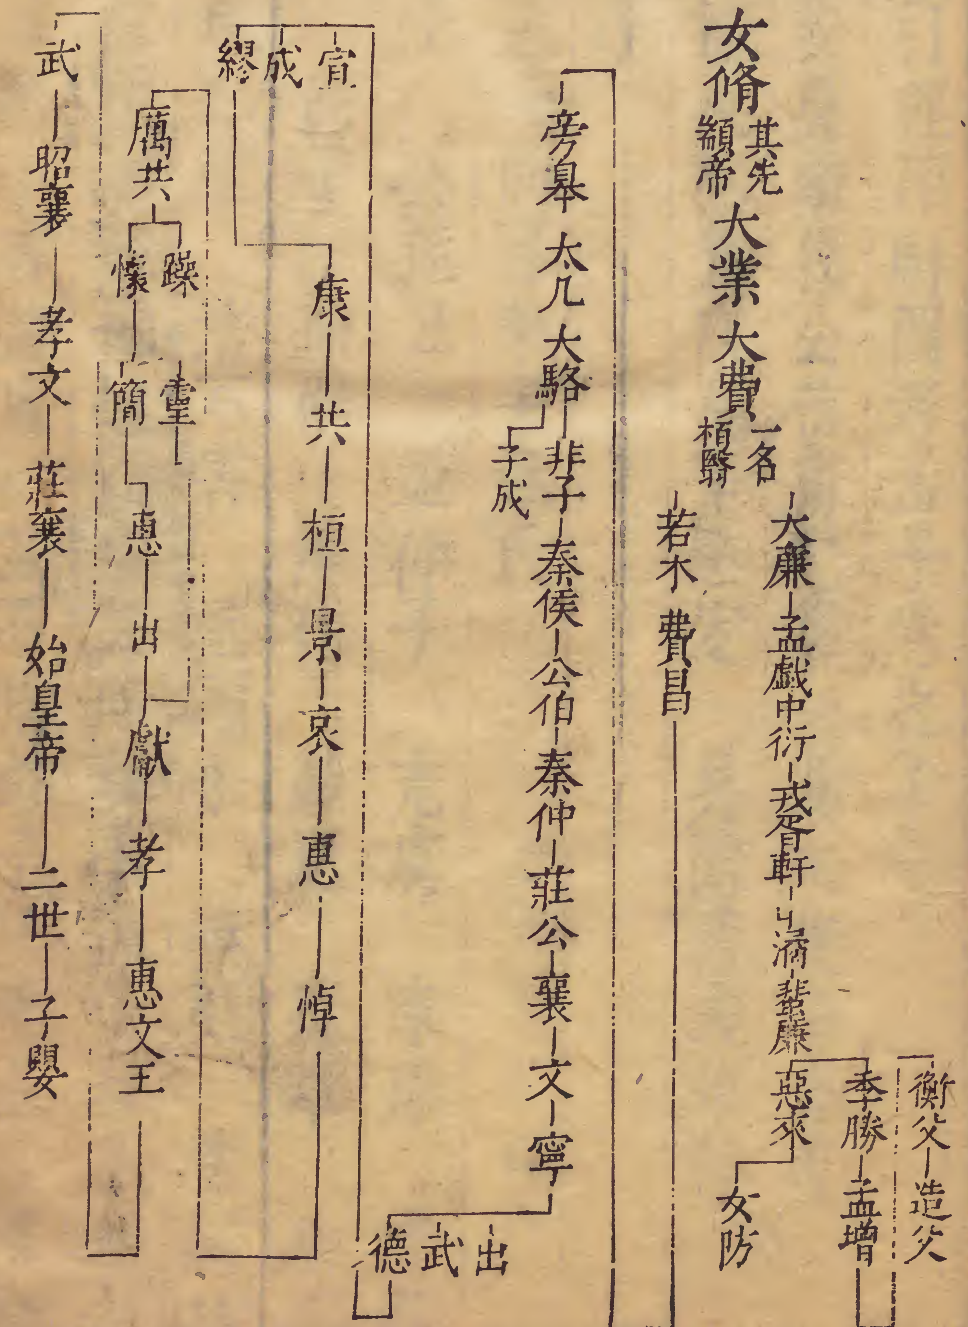 女脩
其先
顓帝
大業
大費
一名
栢翳
大廉
孟戲中衍
戎胥軒
中潏
蜚廉
惡來
女防
季勝
孟增
衡父
造父
若木
費昌
旁皋
太几
大駱
非子
子成
秦侯
公伯
秦仲
莊公
襄
文
寧
出
武
德
宣
成
繆
康
共
桓
景
哀
惠
悼
厲共
躁
懷
靈
簡
惠
出
獻
孝
惠文王
武
昭襄
孝文
莊襄
始皇帝
二世
子嬰